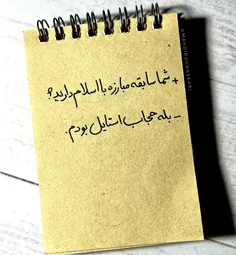 + شما سابقه مبارزه با اسلام دارید؟
- بله حجاب استایل بودم.